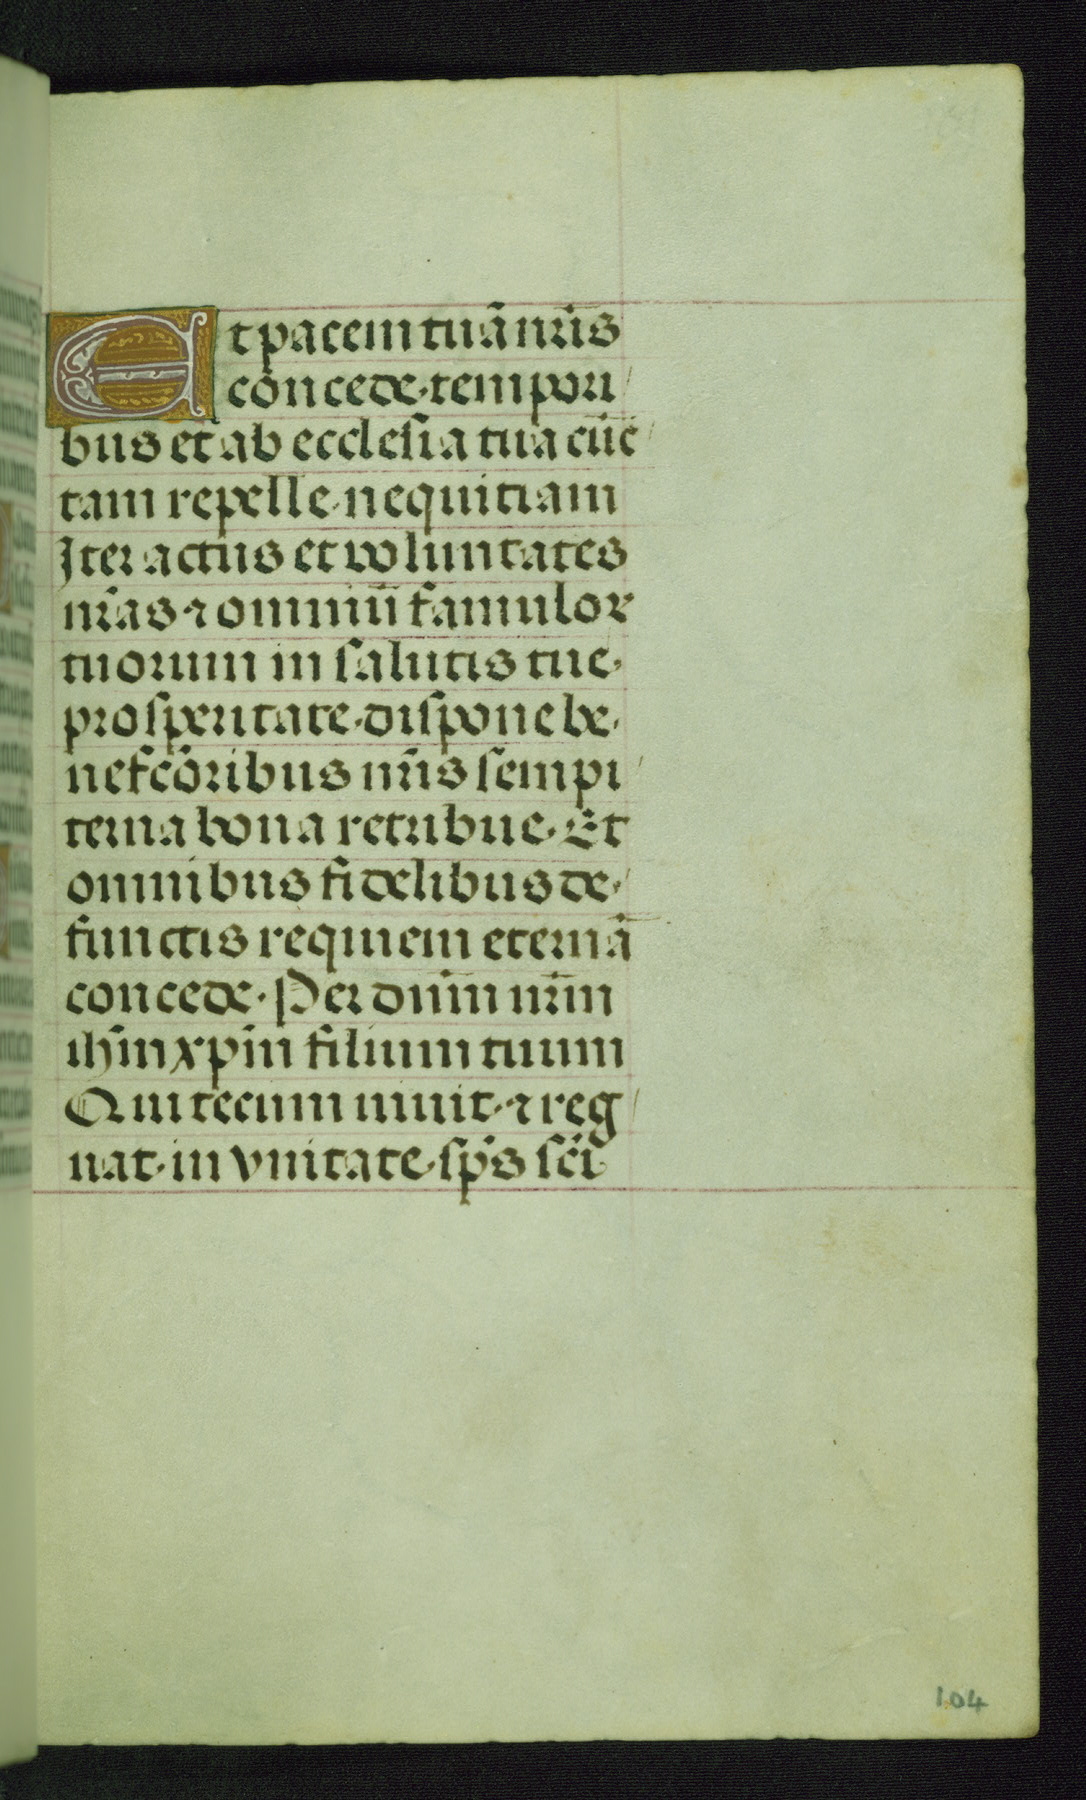 Et pacem tuā nr̄is
concede· tempori
bus et ab ecclesia tua cūc
tam repelle· nequitiam
Iter actus et voluntates
nr̄as ⁊ omniū famulor
tuorum in salutis tue·
prosperitate· dispone be·
nefc̄oribus nr̄is sempi
terna bona retribue· Et
omnibus fidelibus de·
functis requiem eternā
concede· Per dn̄m nr̄m
ihm̄ xpm̄ filium tuum
Qui tecum uiuit· ⁊ reg
nat· in vnitate· sp̄s sc̄i·
104